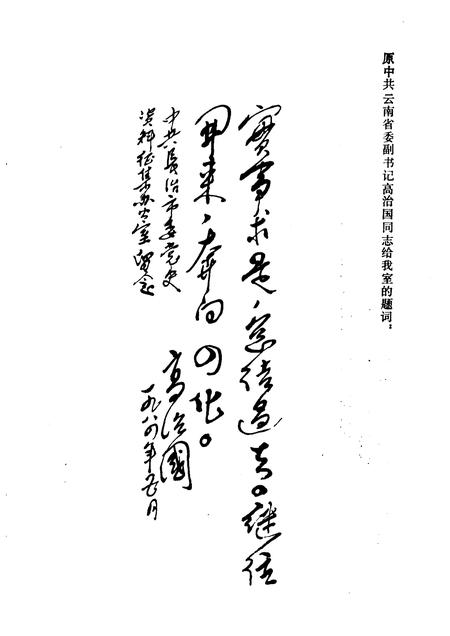 原中共云南省委副书记高治国同志给我室的题词：
實事求是，总结過去。継往
開来，奔向四化。
中共長治市委党史
资料征集办公室留念
高治國
一九八四年五月